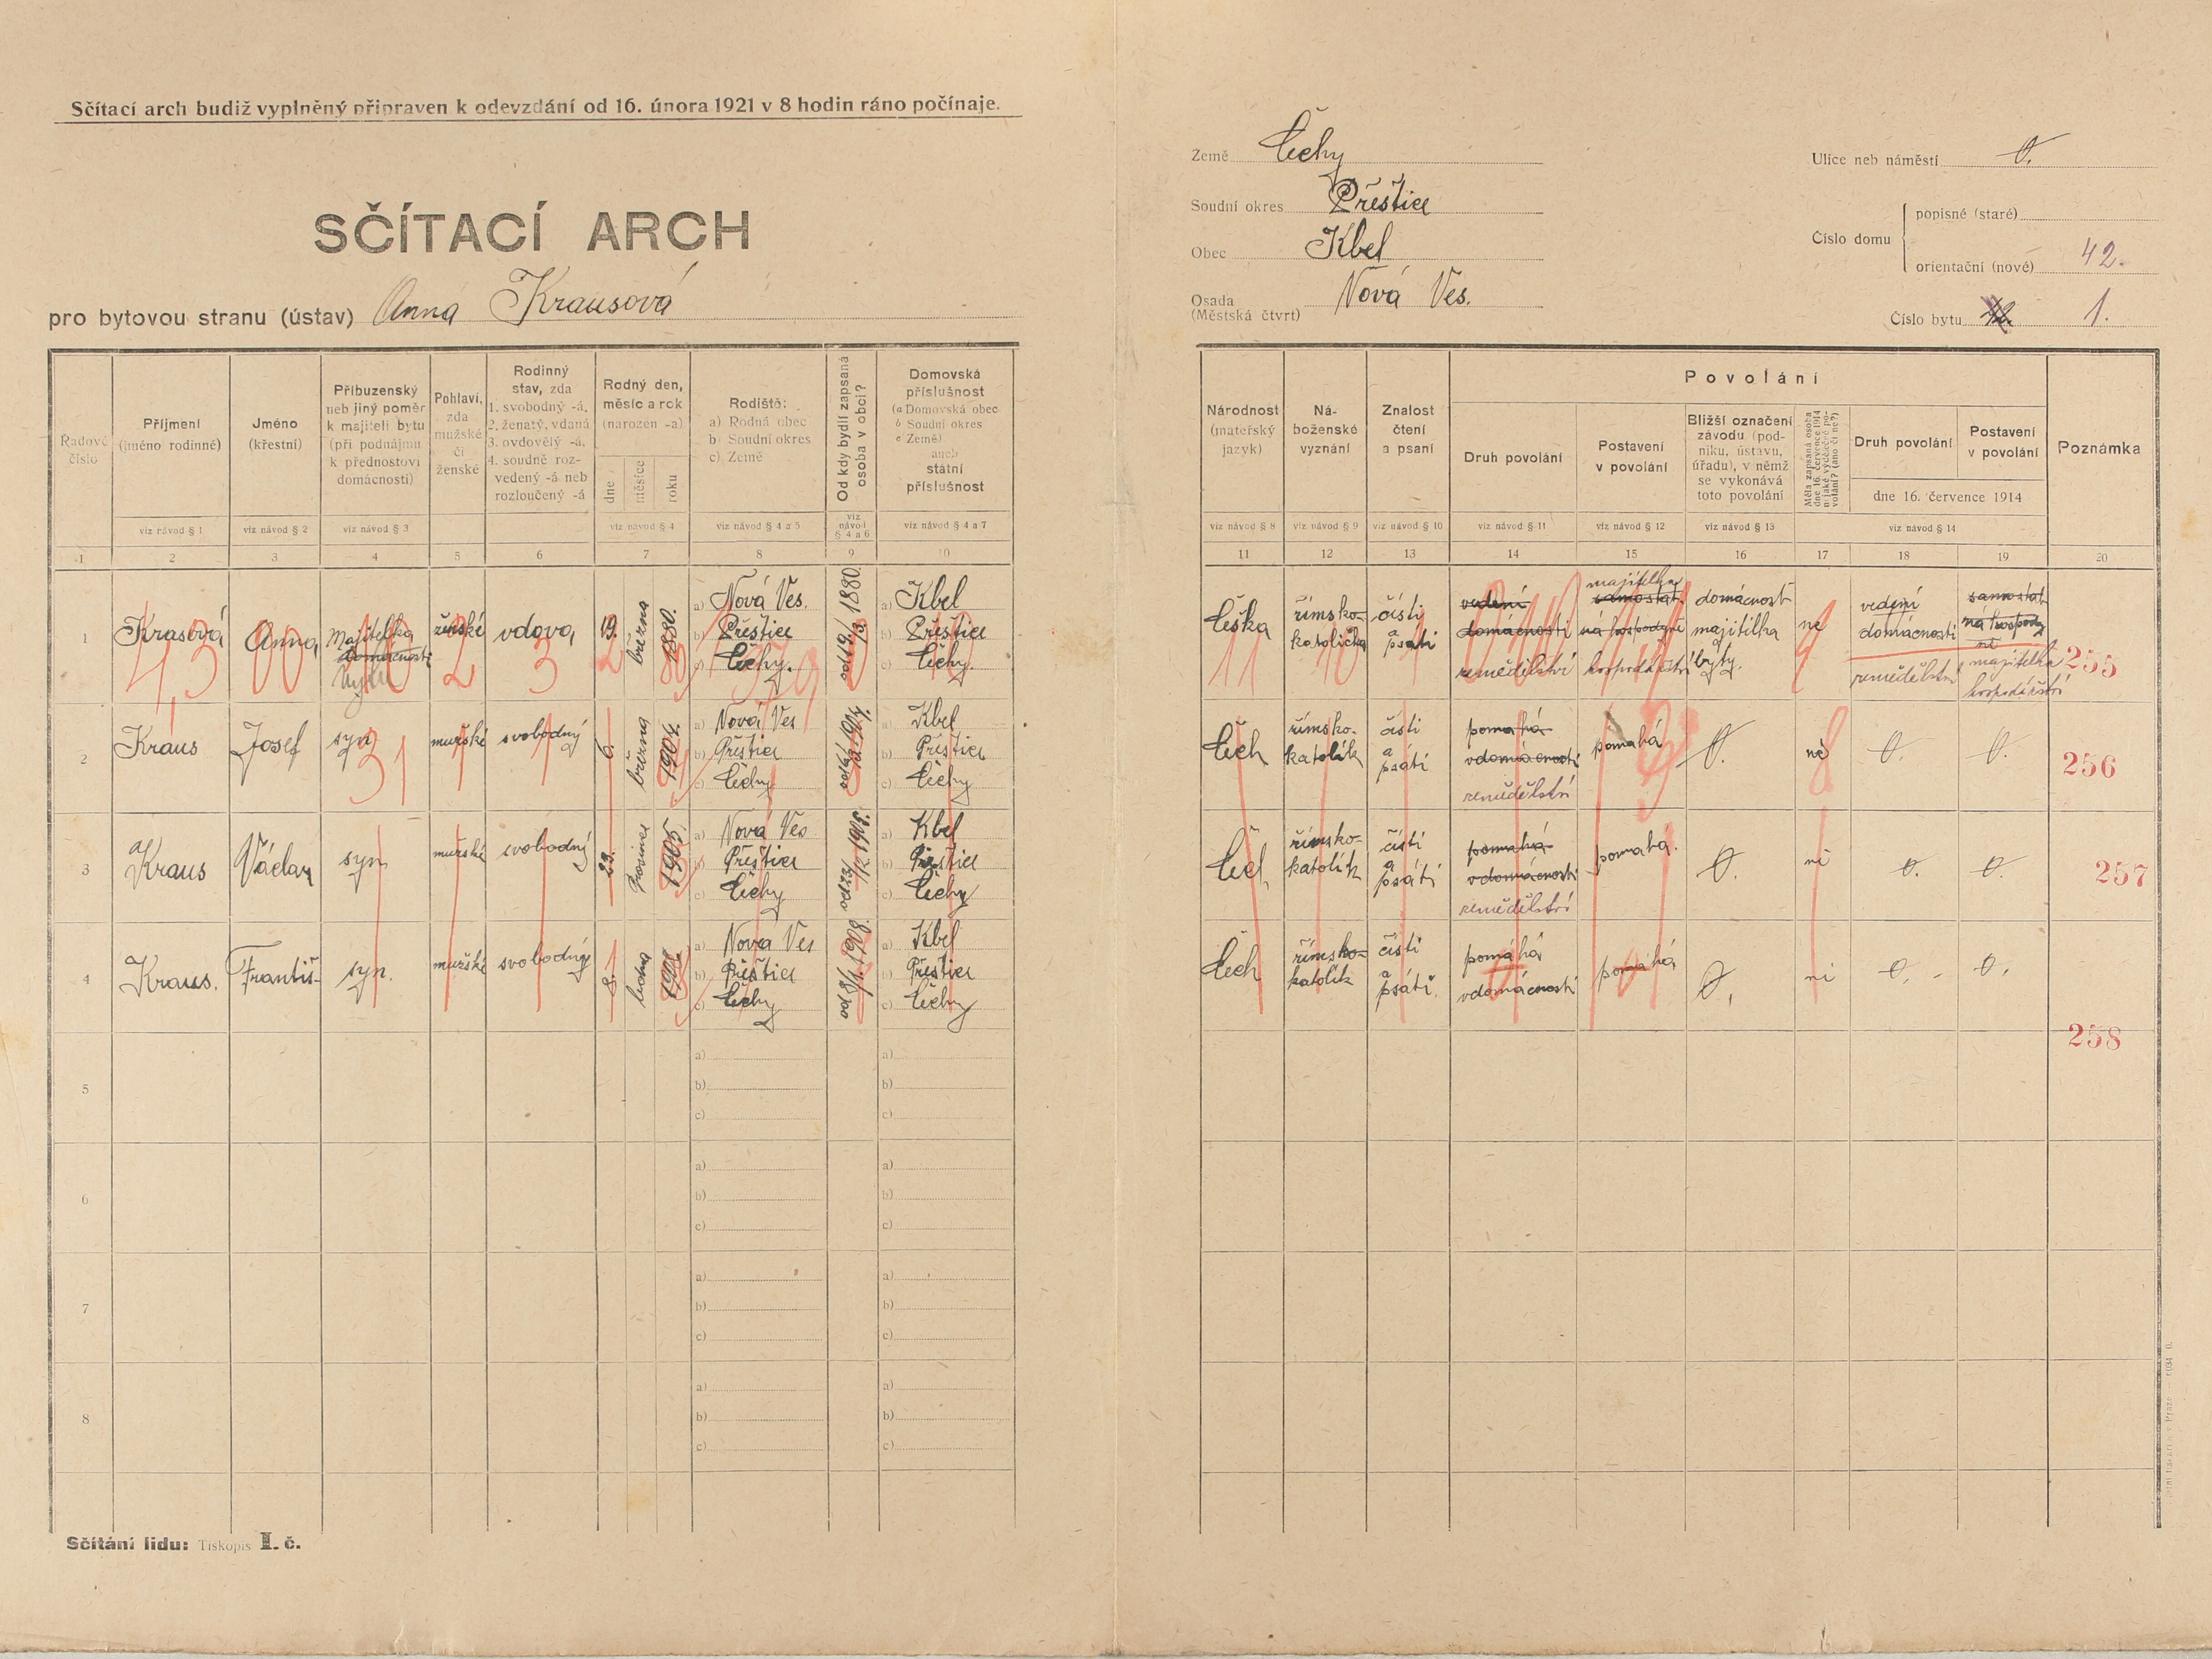 Sčítací arch budiž vyplněný připraven k odevzdání od 16. února 1921 v 8 hodin ráno počínaje.
SČÍTACÍ ARCH
pro bytovou stranu (ústav) Anna Krausová
Země Čechy
Soudní okres Přeštice
Obec Kbel
Osada Nová Ves.
(Městská čtvrt)
Ulice neb náměstí 0.
Číslo domu
popisné (staré)
orientační (nové) 42.
Číslo bytu 1.
Řadové číslo
Příjmení (jméno rodinné)
Jméno (křestní)
Příbuzenský neb jiný poměr k majiteli bytu (při podnájmu k přednostovi domácnosti)
Pohlaví, zda mužské či ženské
Rodinný stav, zda 1. svobodný -á, 2. ženatý, vdaná 3. ovdovělý -á, 4. soudně rozvedený -á neb rozloučený -á
Rodný den, měsíc a rok (narozen -a)
dne měsíce roku
Rodiště: a) Rodná obec b) Soudní okres c) Země
Od kdy bydlí zapsaná osoba v obci?
Domovská příslušnost (a Domovská obec b Soudní okres c Země) aneb státní příslušnost
Národnost (mateřský jazyk)
Náboženské vyznání
Znalost čtení a psaní
Povolání
Druh povolání
Postavení v povolání
Bližší označení závodu (podniku, ústavu, úřadu), v němž se vykonává toto povolání
Měla zapsaná osoba dne 16. července 1914 nějaké výdělečné povolání? (ano či ne?)
Druh povolání
Postavení v povolání
dne 16. července 1914
Poznámka
viz návod § 1 viz návod § 2 viz návod § 3 viz návod § 4 viz návod § 4 a 5 viz návod § 4 a 6 viz návod § 4 a 7 viz návod § 8 viz návod § 9 viz návod § 10 viz návod § 11 viz návod § 12 viz návod § 13 viz návod § 14
1 2 3 4 5 6 7 8 9 10 11 12 13 14 15 16 17 18 19 20
1 Krasová Anna Majitelka domácnosti bytu ženské vdova 19. března 1880.
a) Nová Ves. b) Přeštice c) Čechy.
od 19/3 1880
a) Kbel b) Přeštice c) Čechy.
Češka římsko-katolička čísti a psati
vedení domácnosti zemědělství
majitelka samostatná hospodyně hospodářství
domácnost majitelka bytu.
ne
vedení domácnosti zemědělství
majitelka hospodářství
255
2 Kraus Josef syn mužské svobodný 6. března 1904.
a) Nová Ves b) Přeštice c) Čechy
od 6/3 1904.
a) Kbel b) Přeštice c) Čechy
Čech římsko-katolík čísti a psáti
pomahá v domácnosti zemědělství
pomahá 0. ne 0. 0.
256
3 Kraus Václav syn mužské svobodný 23. prosince 1905.
a) Nová Ves b) Přeštice c) Čechy
od 23/12 1905.
a) Kbel b) Přeštice c) Čechy
Čech římsko-katolík čísti a psáti
pomahá v domácnosti zemědělství
pomahá. 0. ne 0. 0.
257
4 Kraus. Františ- syn. mužské svobodný 8. ledna 1908.
a) Nová Ves b) Přeštice c) Čechy
od 8/1 1908.
a) Kbel b) Přeštice c) Čechy
Čech římsko-katolík čísti a psáti.
pomáhá v domácnosti
pomáhá 0. ne 0. 0.
258
5 a) b) c) a) b) c)
6 a) b) c) a) b) c)
7 a) b) c) a) b) c)
8 a) b) c) a) b) c)
Sčítání lidu: Tiskopis I. č.